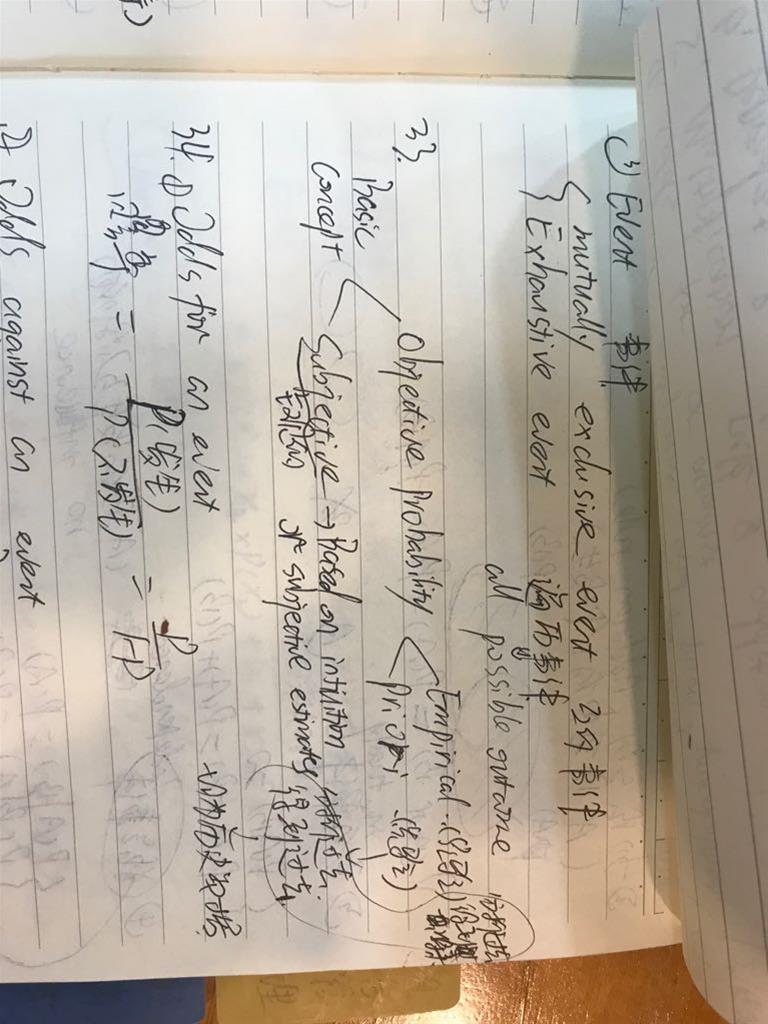 (3) Event 事件
{ mutually exclusive event 互斥事件
Exhaustive event 遍历事件
all possible outcome
33. Basic Concept < Objective Probability < Empirical (经验) 分析过去
Priori (先验)
Subjective → Based on intuition 分析过去
主观 or subjective estimates 得到过去
切为历史数据
34. ① Odds for an event
概率 = P(发生) / P(不发生) = P / 1-P
Odds against an event